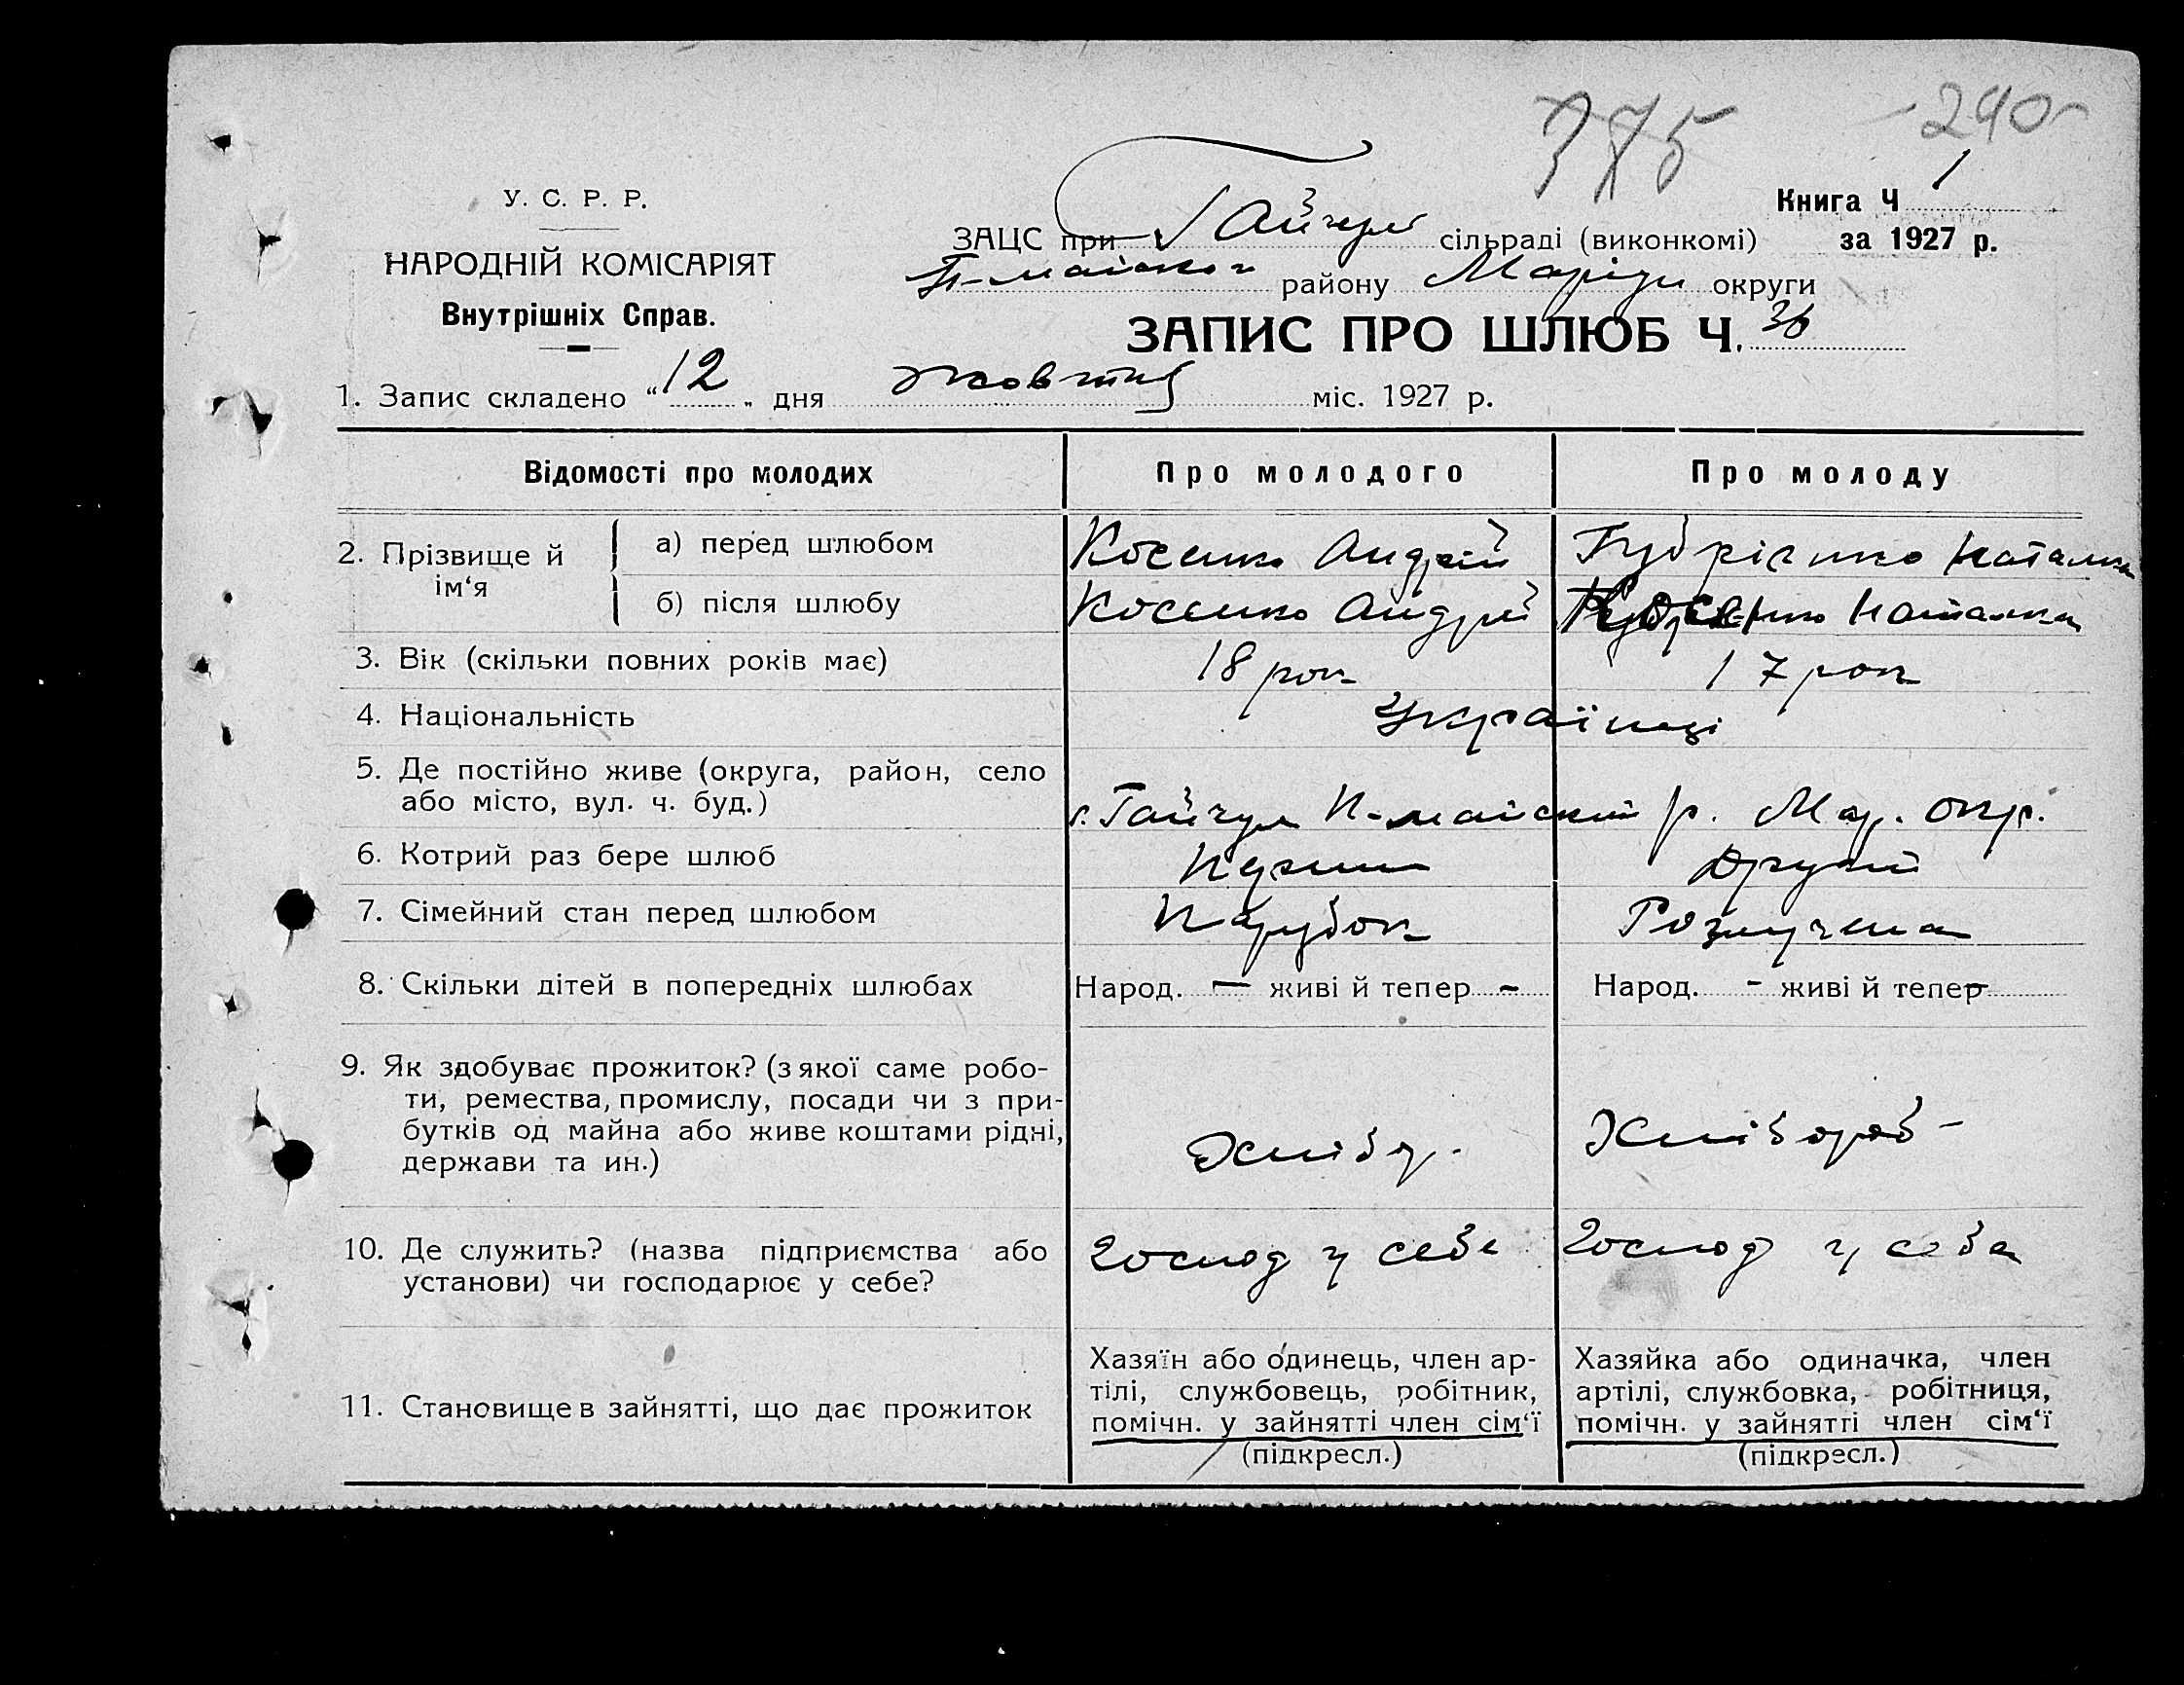 375 240
У. С. Р. Р.
Книга Ч 1
ЗАЦС при Гайчул сільраді (виконкомі) за 1927 р.
НАРОДНІЙ КОМІСАРІЯТ
П-майськог району Маріуп округи
Внутрішніх Справ.
ЗАПИС ПРО ШЛЮБ Ч. 36
1. Запис складено “ 12 „ дня жовтня міс. 1927 р.
Відомості про молодих Про молодого Про молоду
2. Прізвище й ім‘я
а) перед шлюбом Косенко Андрій Наталка
б) після шлюбу Косенко Андрій Косенко Наталка
3. Вік (скільки повних років має) 18 рок 17 рок
4. Національність Українці
5. Де постійно живе (округа, район, село
або місто, вул. ч. буд.) с. Гайчул П-майский р. Мар. окр.
6. Котрий раз бере шлюб Перший Другий
7. Сімейний стан перед шлюбом Парубок Розлучена
8. Скільки дітей в попередніх шлюбах Народ. — живі й тепер - Народ. - живі й тепер -
9. Як здобуває прожиток? (з якої саме робо-
ти, ремества, промислу, посади чи з при-
бутків од майна або живе коштами рідні,
держави та ин.) Хлібор. Хлібороб -
10. Де служить? (назва підприємства або
установи) чи господарює у себе? Господ у себе Господ у себе
11. Становище в зайнятті, що дає прожиток
Хазяїн або одинець, член ар-
тілі, службовець, робітник,
помічн. у зайнятті член сім‘ї
(підкресл.)
Хазяйка або одиначка, член
артілі, службовка, робітниця,
помічн. у зайнятті член сім‘ї
(підкресл.)